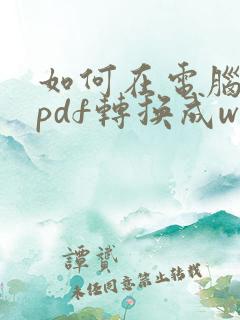 如何在電腦
pdf轉換成w
譚贇
未任同意禁止轉載